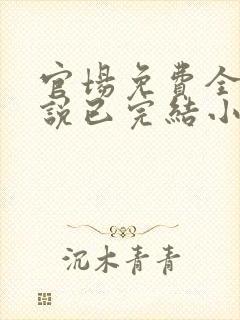 官場免費全
說已完結小
沉木青青